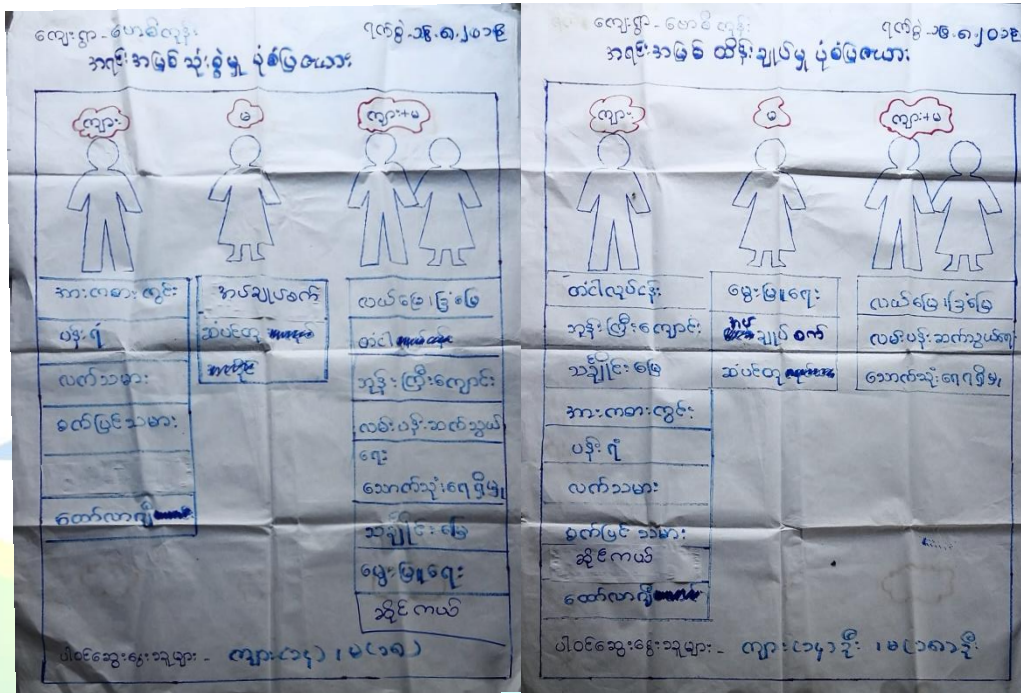 ကျေးရွာ - ဗောဓိကုန်း
ရက်စွဲ ၁၆.၈.၂၀၁၉
အရင်းအမြစ် သုံးစွဲမှု ပုံစံပြဇယား
ကျား
မ
ကျား+မ
အားကစားကွင်း
ပန်းရံ
လက်သမား
စက်ပြင်သမား
ထော်လာဂျီ
အပ်ချုပ်စက်
ဆံပင်တု
လယ်မြေ၊ခြံမြေ
တံငါ
ဘုန်းကြီးကျောင်း
လမ်းပန်းဆက်သွယ်
ရေး
သောက်သုံးရေရရှိမှု
သင်္ချိုင်းမြေ
မွေးမြူရေး
ဆိုင်ကယ်
ပါဝင်ဆွေးနွေးသူများ - ကျား(၁၄)၊ မ(၁၈)
ကျေးရွာ - ဗောဓိကုန်း
ရက်စွဲ ၁၆.၈.၂၀၁၉
အရင်းအမြစ် ထိန်းချုပ်မှု ပုံစံပြဇယား
ကျား
မ
ကျား+မ
တံငါလုပ်ငန်း
ဘုန်းကြီးကျောင်း
သင်္ချိုင်းမြေ
အားကစားကွင်း
ပန်းရံ
လက်သမား
စက်ပြင်သမား
ဆိုင်ကယ်
ထော်လာဂျီ
မွေးမြူရေး
အပ်ချုပ်စက်
ဆံပင်တု
လယ်မြေ၊ခြံမြေ
လမ်းပန်းဆက်သွယ်ရေး
သောက်သုံးရေရရှိမှု
ပါဝင်ဆွေးနွေးသူများ - ကျား(၁၄)ဦး၊ မ(၁၈)ဦး